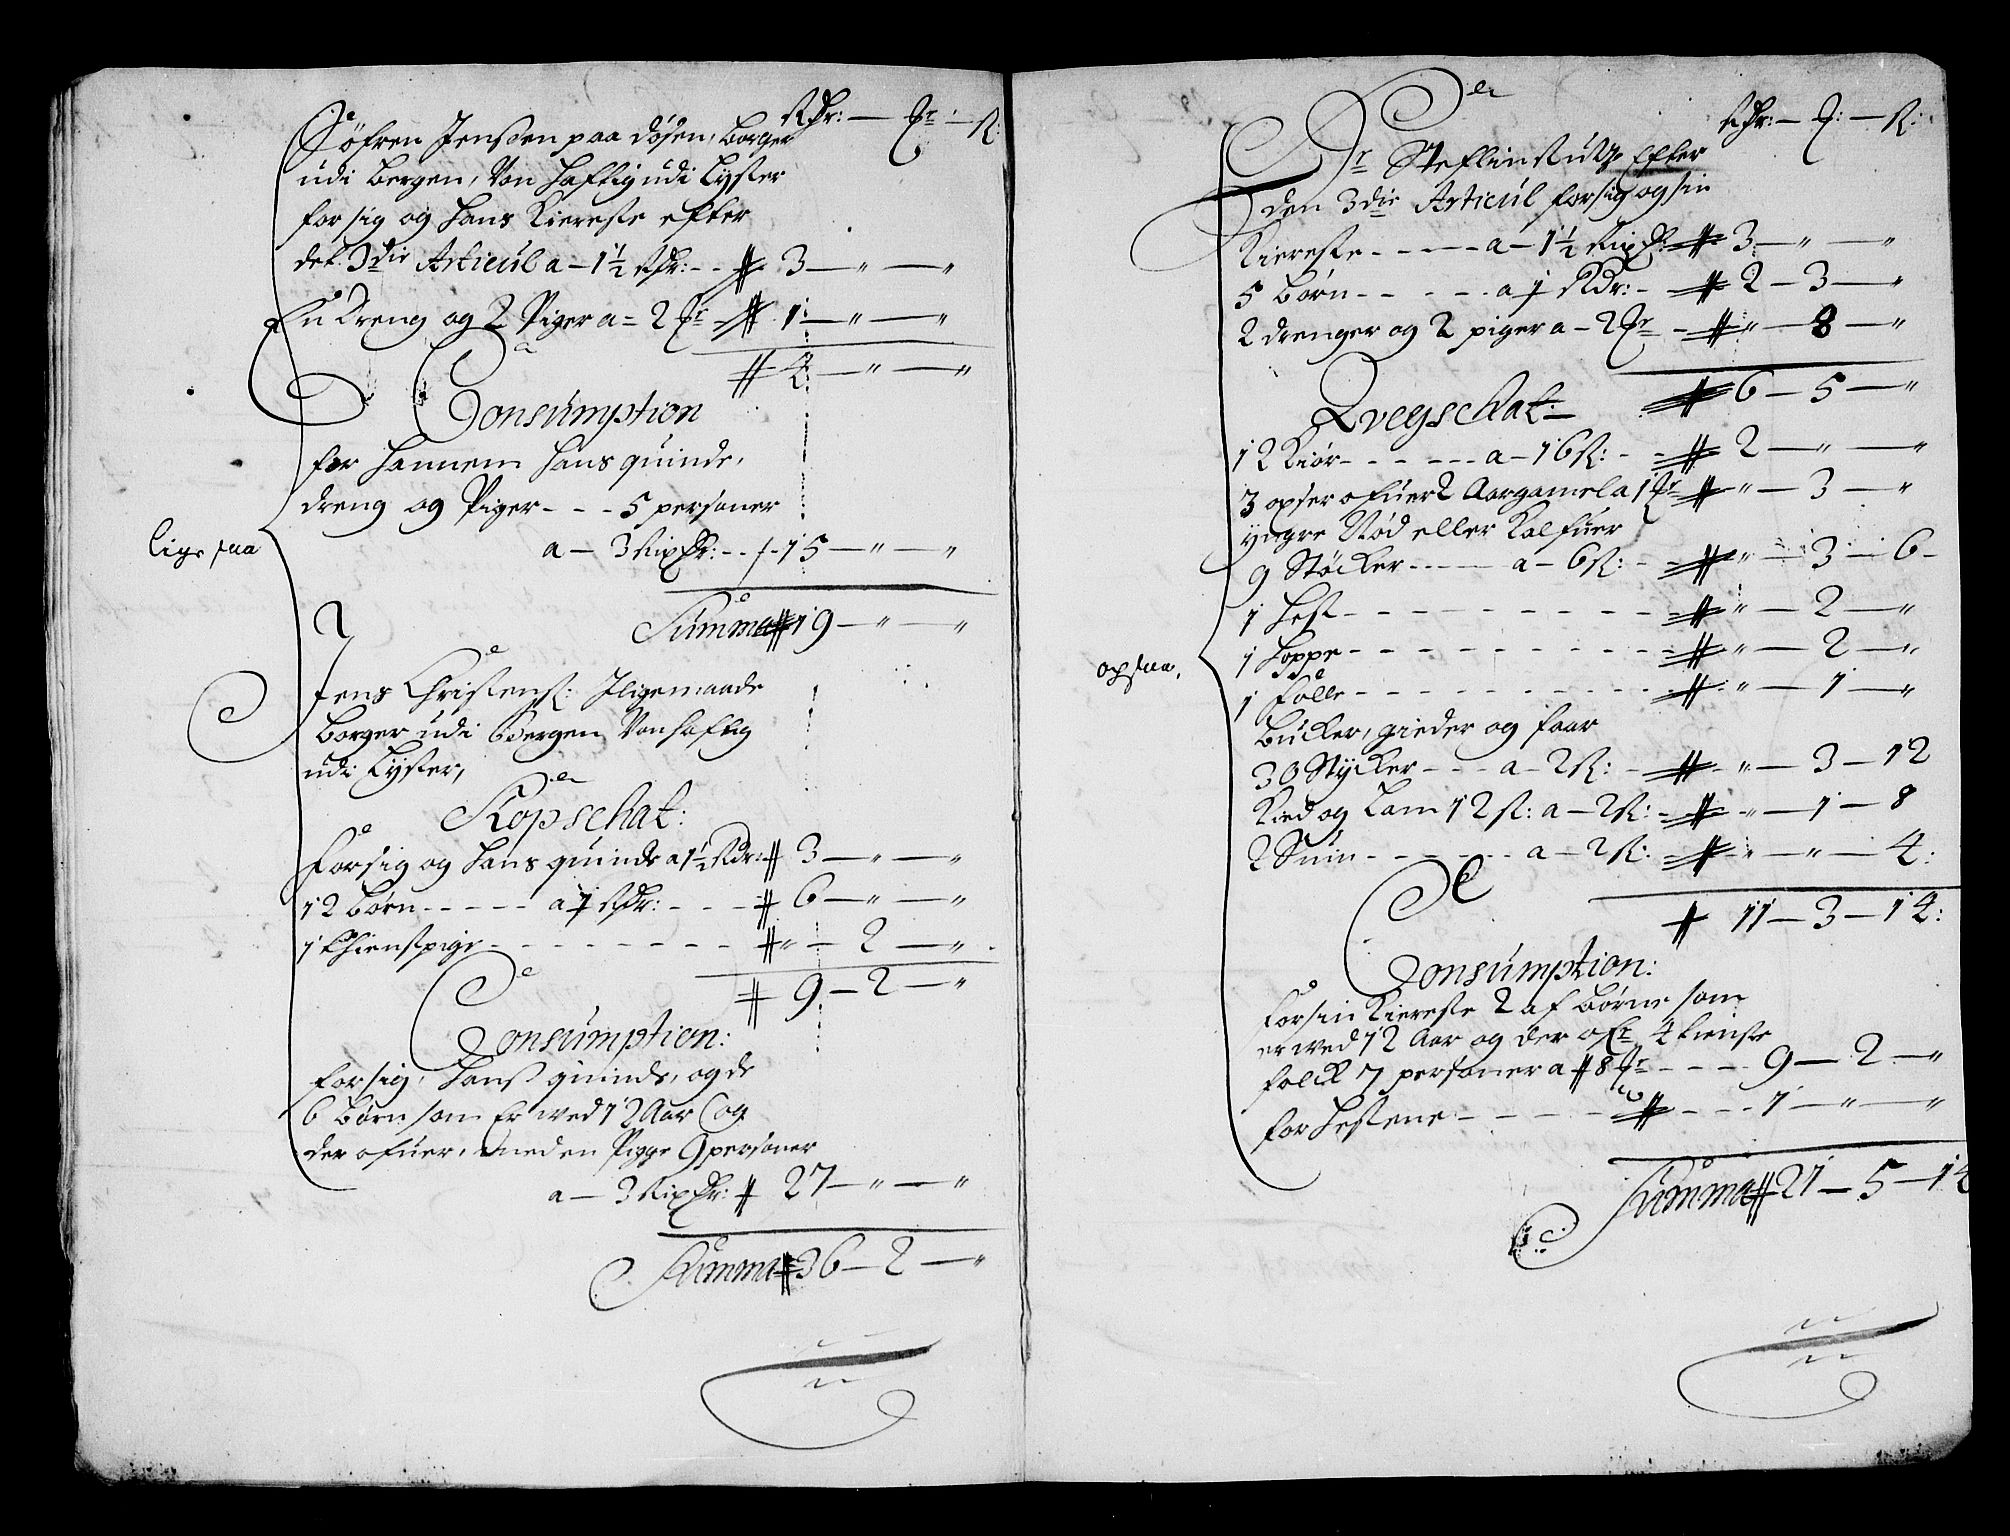 Rdr: — Ort: — s:
Søfren Jenssen paa Døsen, Borger
udi Bergen, Von hafftig udi Lyster
for sig og hans Kiereste efter
det 3die Articul a — 1½ Rdr: - - # 3 — " — "
En Dreng og 2 Piger a = 2 Ort # 1 — " — "
# 4 — " — "
Consumption
for hannem hans quinde,
dreng og Piger - - - 5 personer
a — 3 Rixdr: - - # 15 — " — "
lige saa
Summa # 19 — " — "
Jens Christens: Iligemaade
Borger udi Bergen Vonhafftig
udi Lyster,
Kopschat:
For sig og hans quinde a 1½ Rdr: # 3 — " — "
12 Børn - - - - - a ½ Rdr: - - - # 6 — " — "
1 thienstpige - - - - - - - - # " — 2 — "
# 9 — 2 — "
Consumption:
for sig, hanss quinde, og de
6 Børn som Er wed 12 Aar og
der ofuer, med en Pige 9 personer
a — 3 Rixdr: # 27 — " — "
Summa # 36 — 2 — "
Rdr: — Ort: — s:
Hr Steffin efter
den 3die Articul for sig og sin
Kiereste - - - - - a — 1½ Rixdr: # 3 — " — "
5 Børn - - - - - a ½ Rdr: - # 2 — 3 — "
2 drenger og 2 piger a — 2 Ort - # " — 8 — "
# 6 — 5 — "
Qvegschat:
12 Kiør - - - - - - a — 16 s: - - # 2 — " — "
3 opser ofuer 2 Aar gamel a 1 Ort # " — 3 — "
yngre Nød eller Kalfuer
9 Støcker - - - - a — 6 s: - - # " — 3 — 6 —
1 Hest - - - - - - - - - - # " — 2 — "
1 Hoppe - - - - - - - - - - # " — 2 — "
opsaa,
1 Følle - - - - - - - - - - # " — 1 — "
Bucker, gieder og faar
30 Stycker - - - a — 2 s: - # " — 3 — 12
Kied og Lam 12 s: a — 2 s: - # " — 1 — 8
2 Suin - - - - - - a — 2 s: # " — " — 4:
# 11 — 3 — 14:
Consumption:
For sin Kiereste 2 af Børne som
er wed 12 Aar og der ofr 4 tieniste
folck 7 personer a # 8 Ort - - - - 9 — 2 — "
for Hestene - - - - - # - - - 1 — " — "
Summa # 21 — 5 — 14